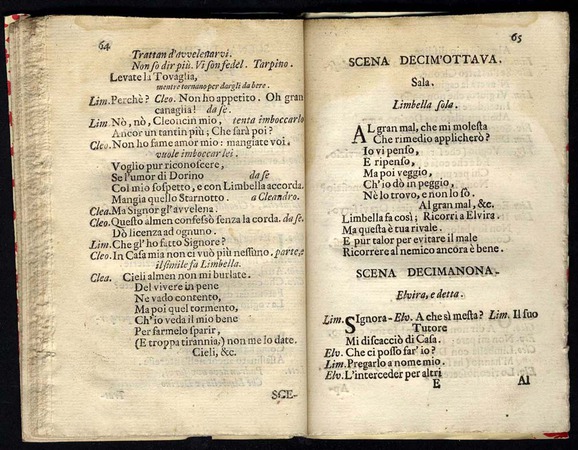 64
Trattan d'avvelenarvi.
Non so dir più. Vi son fedel. Tarpino.
Levate la Tovaglia,
mentre tornano per dargli da bere.
Lim. Perchè? Cleo. Non ho appetito. Oh gran
canaglia! da se.
Lim. Nò, nò, Cleoncin mio, tenta imboccarlo
Ancor un tantin più; Che sarà poi?
Cleo. Non ho fame amor mio: mangiate voi.
vuole imboccar lei.
Voglio pur riconoscere,
Se l'umor di Dorino da se
Col mio sospetto, e con Limbella accorda.
Mangia quello Starnotto. a Cleandro.
Clea. Ma Signor gl'avvelena.
Cleo. Questo almen confessò senza la corda. da se.
Dò licenza ad ognuno.
Lim. Che gl'ho fatto Signore?
Cleo. In Casa mia non ci vuò più nessuno. parte, e
il simile fa Limbella.
Clea. Cieli almen non mi burlate.
Del vivere in pene
Ne vado contento,
Ma poi quel tormento,
Ch'io veda il mio bene
Per farmelo sparir,
(E troppa tirannia,) non me lo date.
Cieli, &c.
SCE-
65
SCENA DECIM'OTTAVA.
Sala.
Limbella sola.
AL gran mal, che mi molesta
Che rimedio applicherò?
Io vi penso,
E ripenso,
Ma poi veggio,
Ch'io dò in peggio,
Nè lo trovo, e non lo sò.
Al gran mal, &c.
Limbella fa così; Ricorri a Elvira.
Ma questa è tua rivale.
E pur talor per evitare il male
Ricorrere al nemico ancora è bene.
SCENA DECIMANONA.
Elvira, e detta.
Lim. SIgnora - Elv. A che sì mesta? Lim. Il suo
Tutore
Mi discacciò di Casa.
Elv. Che ci posso far' io?
Lim. Pregarlo a nome mio.
Elv. L'interceder per altri
E
Al